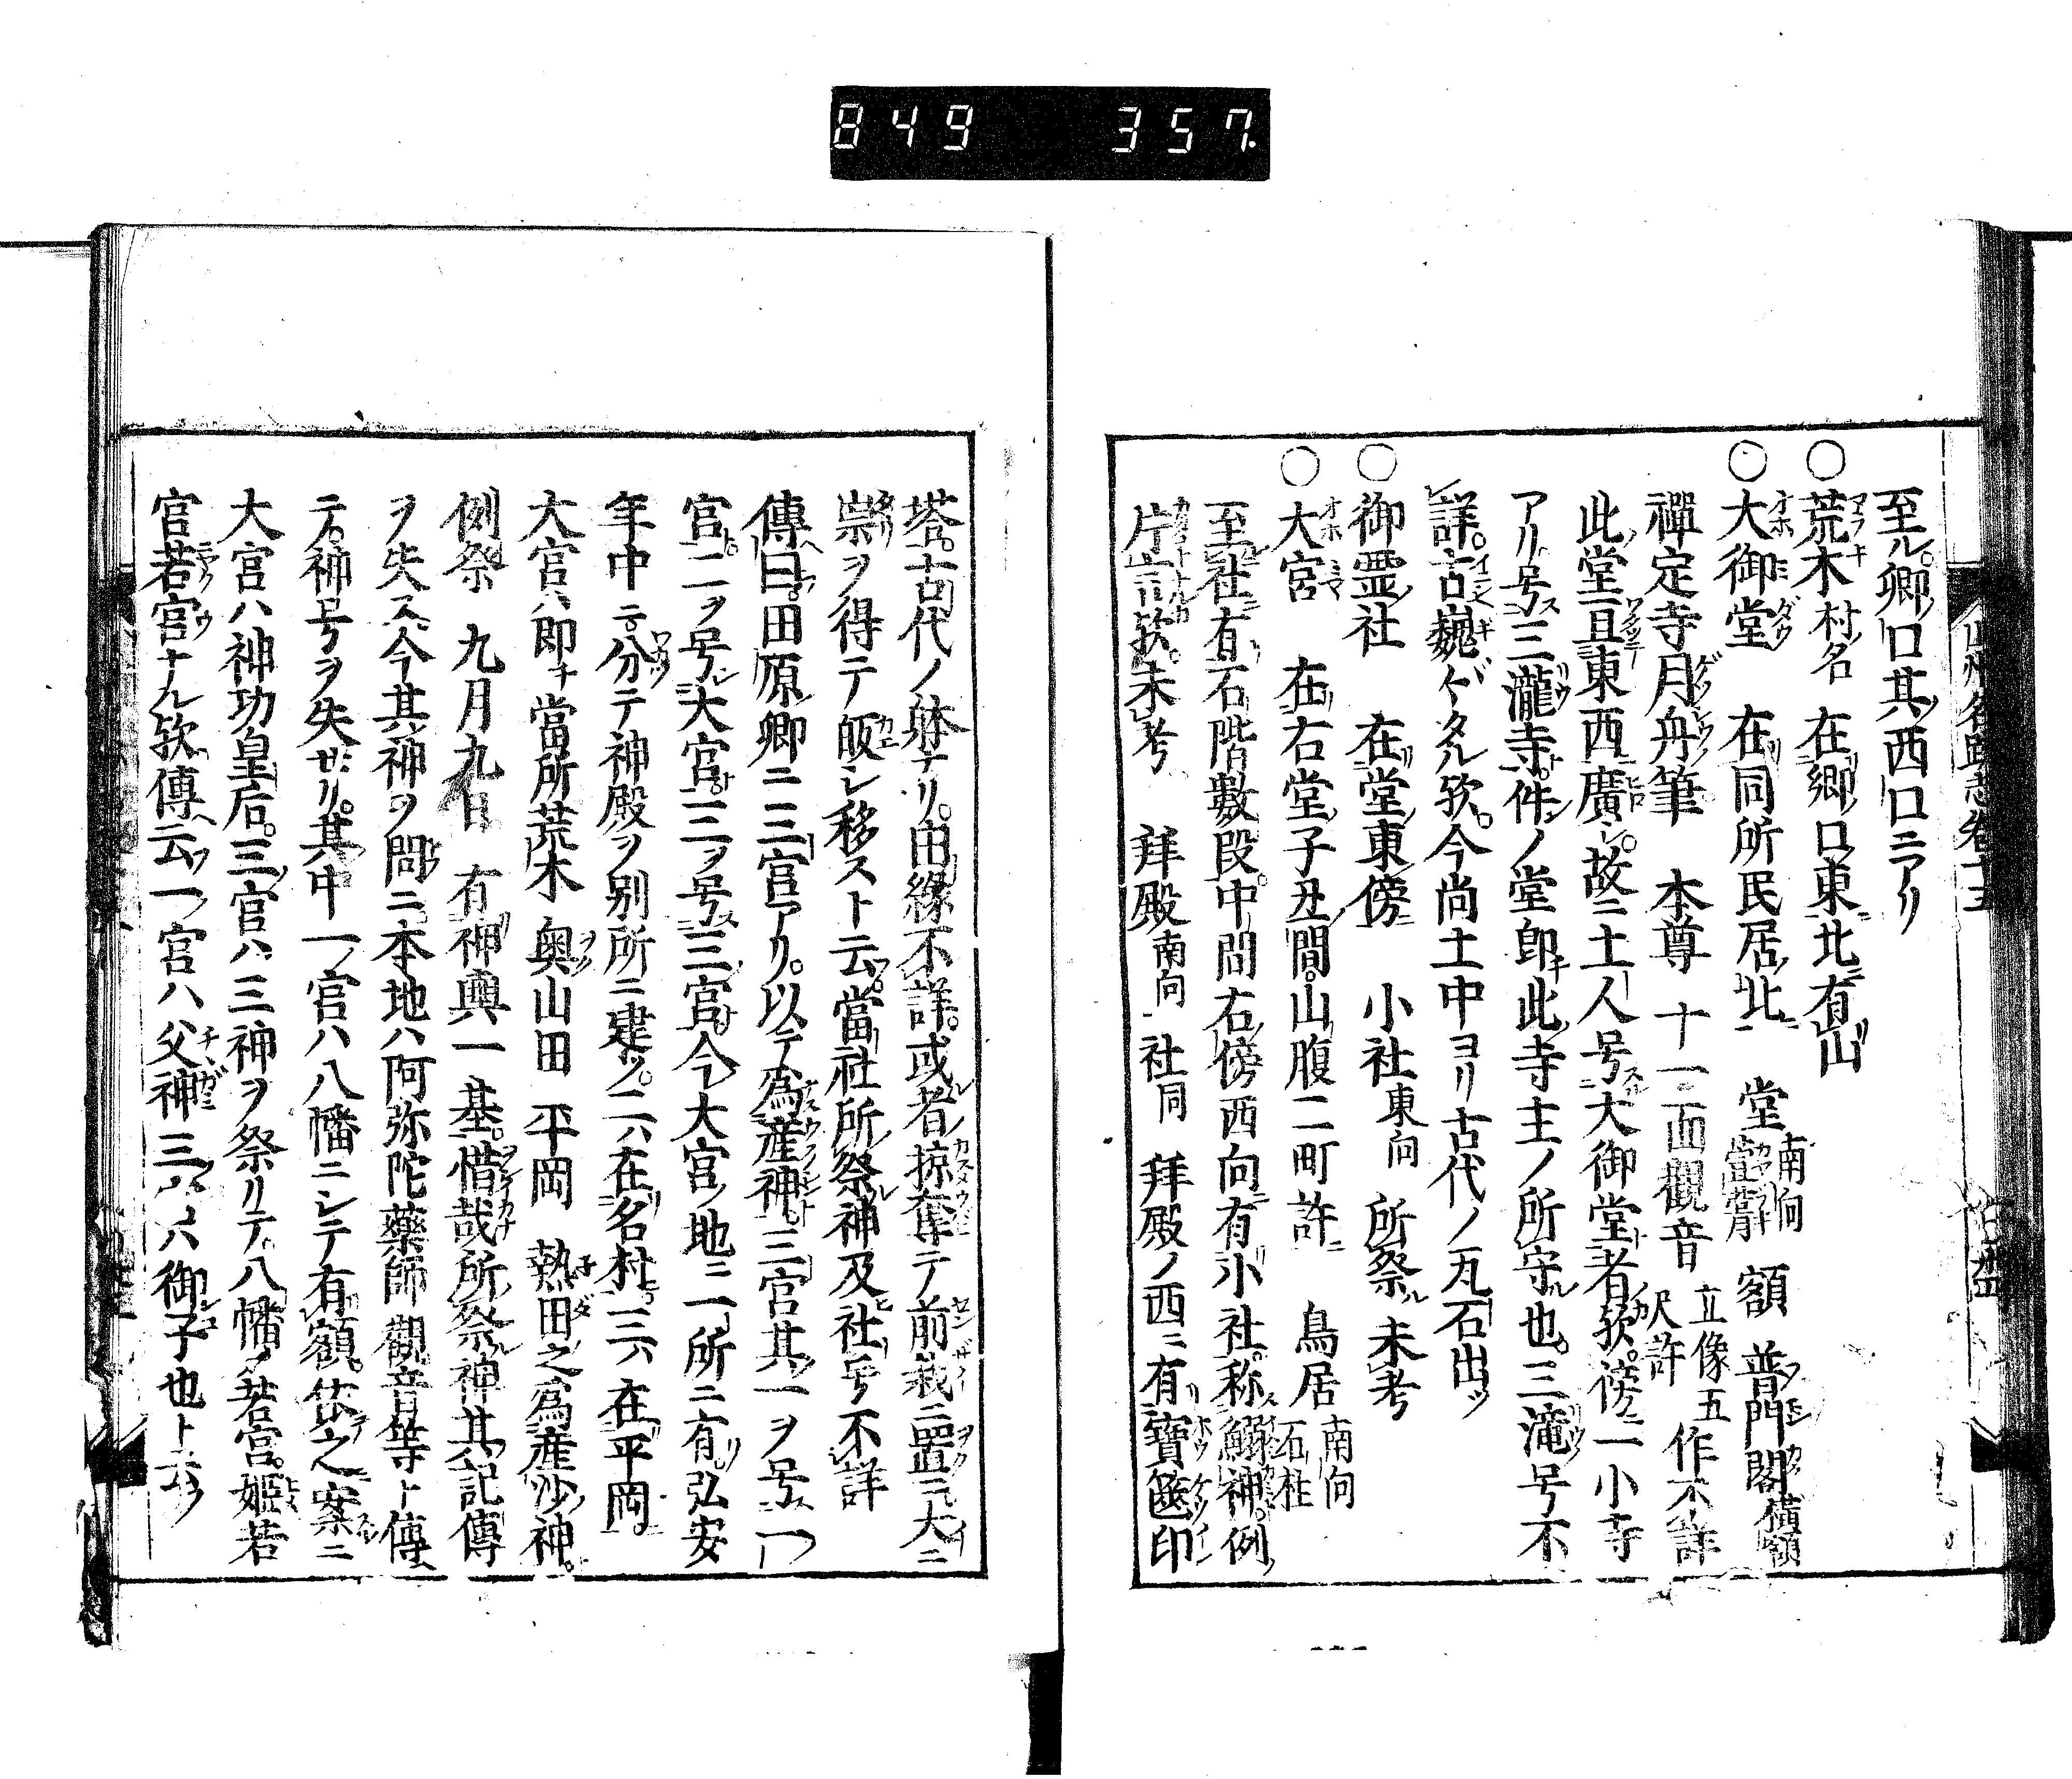 849 357.
至ル。郷ノ口其ノ西口ニアリ
○荒木村ノ名 在郷ノ口東北有山
○大御堂 在同所民居ノ北 堂南向 額 普門閣横額
禪定寺月舟筆 本尊 十一面觀音立像五尺許 作不詳
此堂亘東西廣シ。故ニ土人号大御堂者欤。傍ニ一小寺
アリ。号三瀧寺。件ノ堂即此ノ寺主ノ所守也。三滝号不
詳。古巍ゲタル欤。今尚土中ヨリ古代ノ瓦石出ヅ
○御霊社 在堂ノ東傍 小社東向 所祭未考
○大宮 在右堂子丑ノ間。山腹二町許 鳥居南向石柱
至社有石階數段。中間右傍西向有小社。称鰯神。例ノ
片言欤。未考 拜殿南向 社同 拜殿ノ西ニ有寶篋印
塔。古代ノ躰ナリ。由緣不詳。或者掠奪テ前栽ニ置ニ大ニ
祟ヲ得テ皈シ移スト云。當社所祭神及社号不詳
傳曰。田原郷ニ三宮アリ。以テ為産神。三宮其一ヲ号一
宮二ヲ号大宮。三ヲ号三宮今大宮ノ地ニ一所ニ有。弘安
年中ニ分テ神殿ヲ別所ニ建ツ。二ハ在名村。三ハ在平岡。
大宮ハ即當所荒木 奥山田 平岡 熱田之為産沙神。
例祭 九月九日 有神輿一基。惜哉所祭神其ノ記傳
ヲ失ス今其神ヲ問ニ本地ハ阿弥陀藥師觀音等ト傳
テ。神号ヲ失セリ。其中一ノ宮ハ八幡ニシテ有額。依之案ニ
大宮ハ神功皇后。三宮ハ三神ヲ祭リテ八幡ノ若宮。姫若
宮若宮ナル欤傳云一宮ハ父神三ハ御子也ト云フ